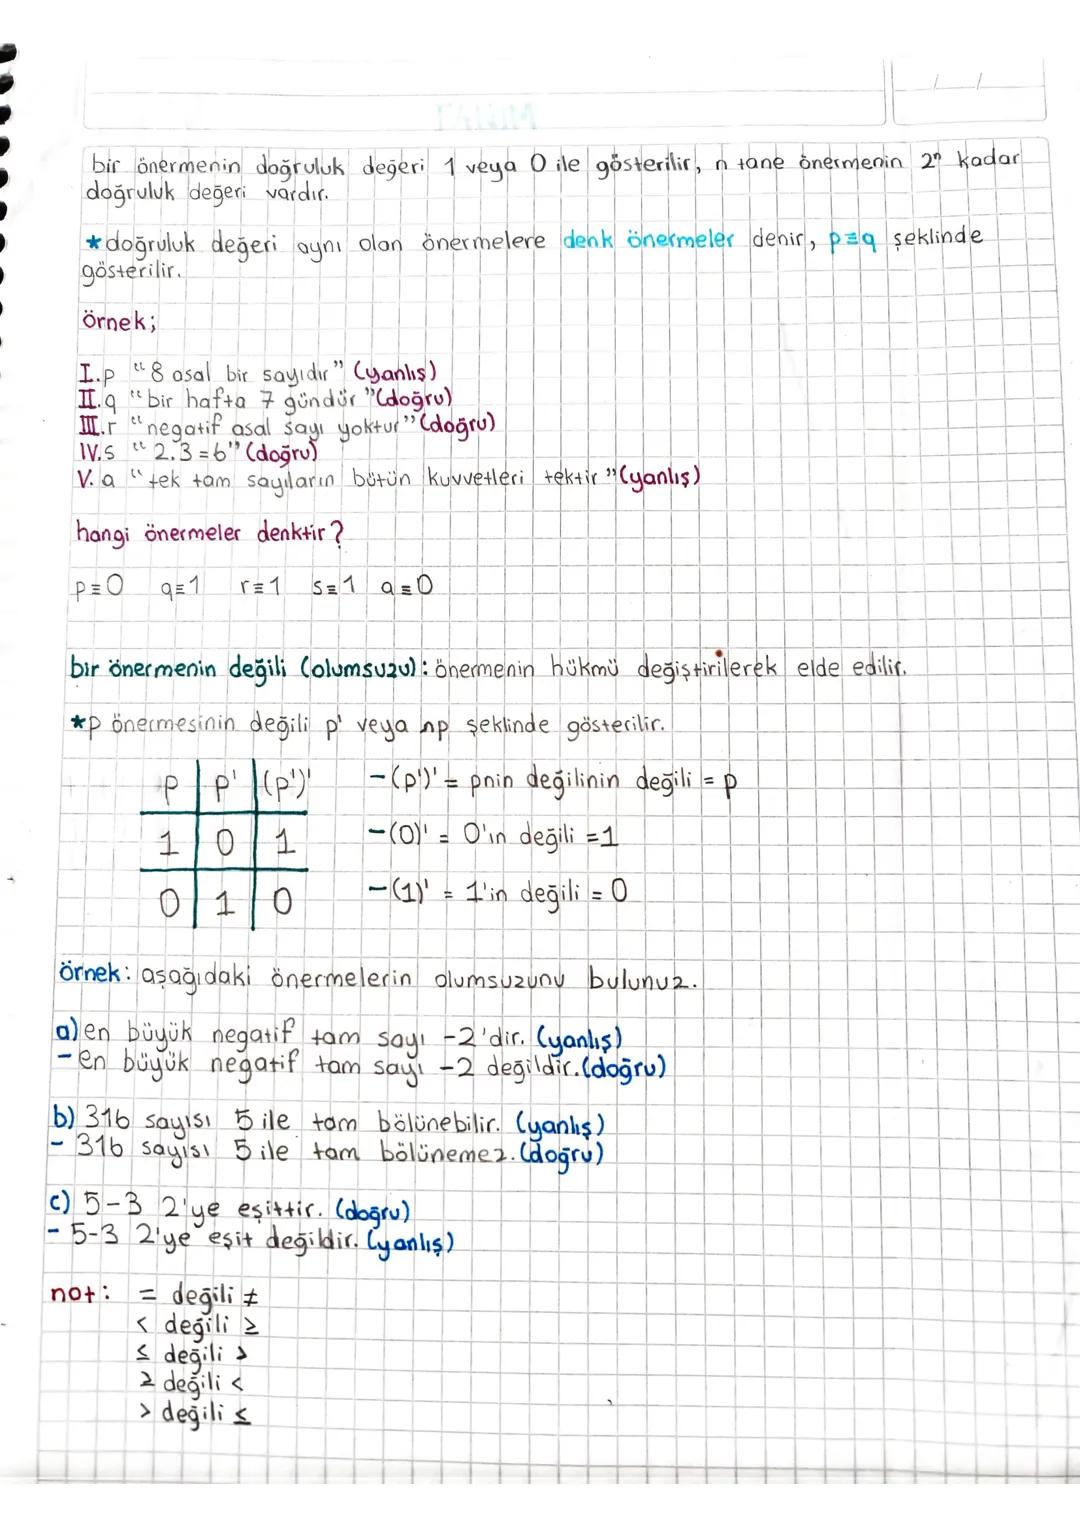 TANIM
bir önermenin doğruluk değeri 1 veya 0 ile gösterilir, n tane önermenin 2ⁿ kadar
doğruluk değeri vardır.
*doğruluk değeri aynı olan önermelere denk önermeler denir, p≡q şeklinde
gösterilir.
örnek;
I.p “8 asal bir sayıdır” (yanlış)
II.q “bir hafta 7 gündür” (doğru)
III.r “negatif asal sayı yoktur” (doğru)
IV.s “2.3=6” (doğru)
V.a “tek tam sayıların bütün kuvvetleri tektir” (yanlış)
hangi önermeler denktir?
p≡0 q≡1 r≡1 s≡1 a≡0
bir önermenin değili (olumsuzu): önermenin hükmü değiştirilerek elde edilir.
*p önermesinin değili p' veya ~p şeklinde gösterilir.
p p' (p')' -(p')' = pnin değilinin değili = p
1 0 1 -(0)' = 0'ın değili =1
0 1 0 -(1)' = 1'in değili = 0
örnek: aşağıdaki önermelerin olumsuzunu bulunuz.
a) en büyük negatif tam sayı -2'dir. (yanlış)
- en büyük negatif tam sayı -2 değildir. (doğru)
b) 316 sayısı 5 ile tam bölünebilir. (yanlış)
- 316 sayısı 5 ile tam bölünemez. (doğru)
c) 5-3 2'ye eşittir. (doğru)
- 5-3 2'ye eşit değildir. (yanlış)
not: = değili ≠
< değili ≥
≤ değili >
≥ değili <
> değili ≤